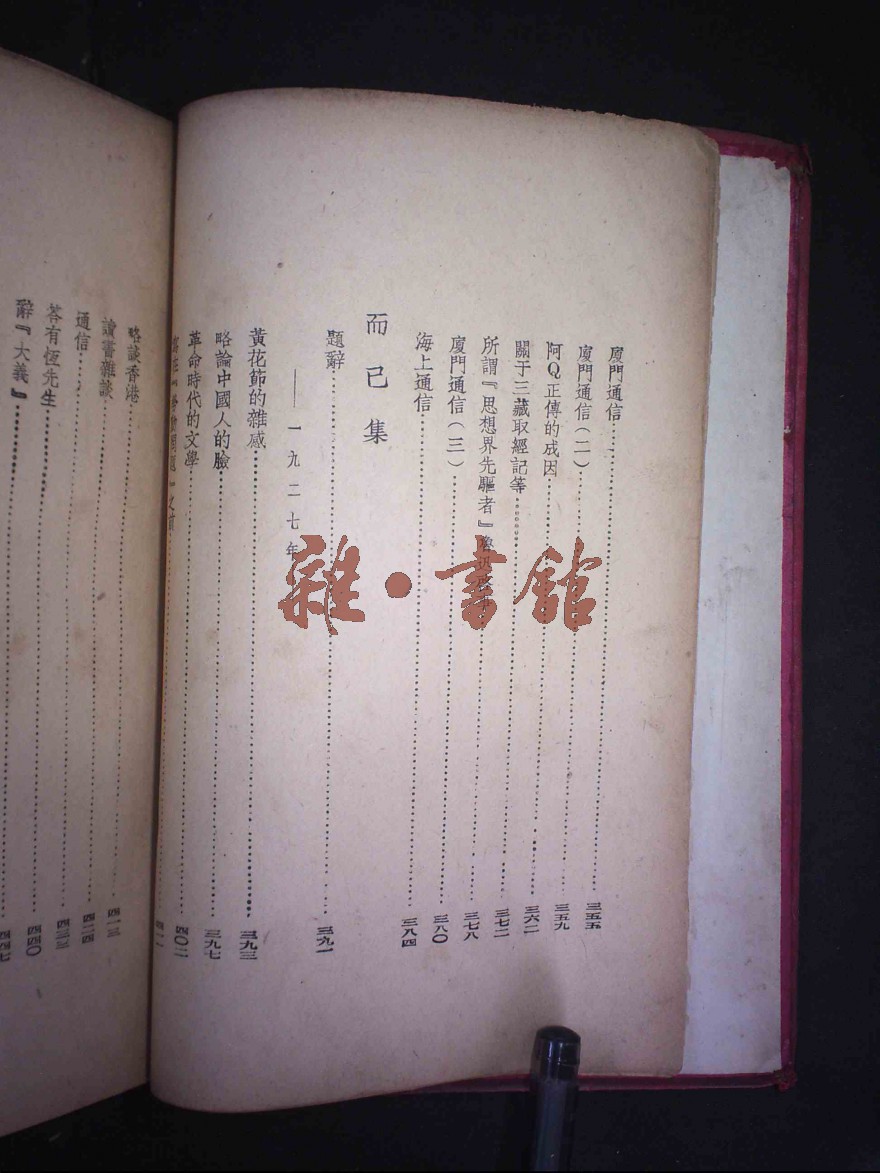 廈門通信……三五五
廈門通信(二)……三五九
阿Q正傳的成因……三六二
關于三藏取經記等……三七二
所謂『思想界先驅者』魯迅啟事……三七八
廈門通信(三)……三八〇
海上通信……三八四
而已集
題辭……三九一
——一九二七年
黃花節的雜感……三九三
略論中國人的臉……三九七
革命時代的文學……四〇二
寫在『勞動問題』之前
略談香港……四一三
讀書雜談……四二四
通信……四三三
答有恆先生……四四〇
辭『大義』……四四七
雜·書館